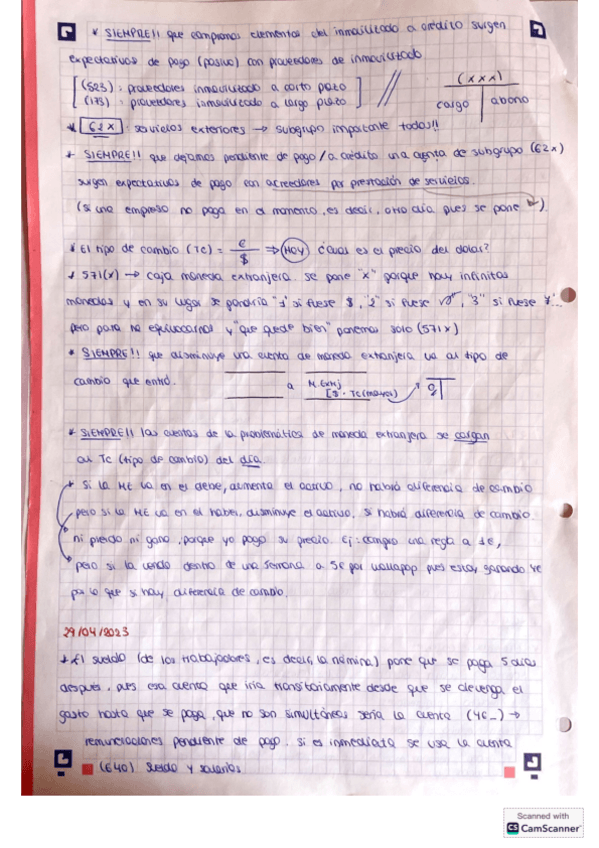 * SIEMPRE!! que compramos elementos del inmovilizado a crédito surgen
expectativas de pago (pasivo) con proveedores de inmovilizado
(523): proveedores inmovilizado a corto plazo
(173): proveedores inmovilizado a largo plazo
(xxx)
cargo abono
* 62x servicios exteriores → subgrupo importante todas!!
* SIEMPRE!! que dejamos pendiente de pago/a crédito una cuenta de subgrupo (62x)
surgen expectativas de pago con acreedores por prestación de servicios.
(si una empresa no paga en el momento, es decir, otro día pues se pone)
* El tipo de cambio (TC) = €/$ ⇒ HOY ¿cual es el precio del dolar?
* 571(x) → caja moneda extranjera. se pone "x" porque hay infinitas
monedas y en su lugar se pondría "1" si fuese $, "2" si fuese, "3" si fuese ...
pero para no equivocarnos y "que quede bien" ponemos solo (571x)
* SIEMPRE!! que disminuye una cuenta de moneda extranjera va al tipo de
cambio que entró. a M. Extrj
[$ · TC (mayor)
* SIEMPRE!! las cuentas de la problemática de moneda extranjera se cargan
al TC (tipo de cambio) del día
* Si la ME va en el debe, aumenta el activo, no habrá diferencia de cambio
pero si la ME va en el haber, disminuye el activo, si habrá diferencia de cambio.
ni pierdo ni gano, porque yo pago su precio. Ej: compro una regla a 1€,
pero si la vendo dentro de una semana a 5€ por wallapop pues estoy ganando 4€
por lo que si hay diferencia de cambio.
29/04/2023
* El sueldo (de los trabajadores, es decir, la nómina) pone que se paga 5 días
después, pues esa cuenta que iría transitoriamente desde que se devenga el
gasto hasta que se paga, que no son simultáneas sería la cuenta (46..) →
remuneraciones pendiente de pago. Si es inmediata se usa la cuenta
(640) sueldo y salarios
Scanned with
CS CamScanner